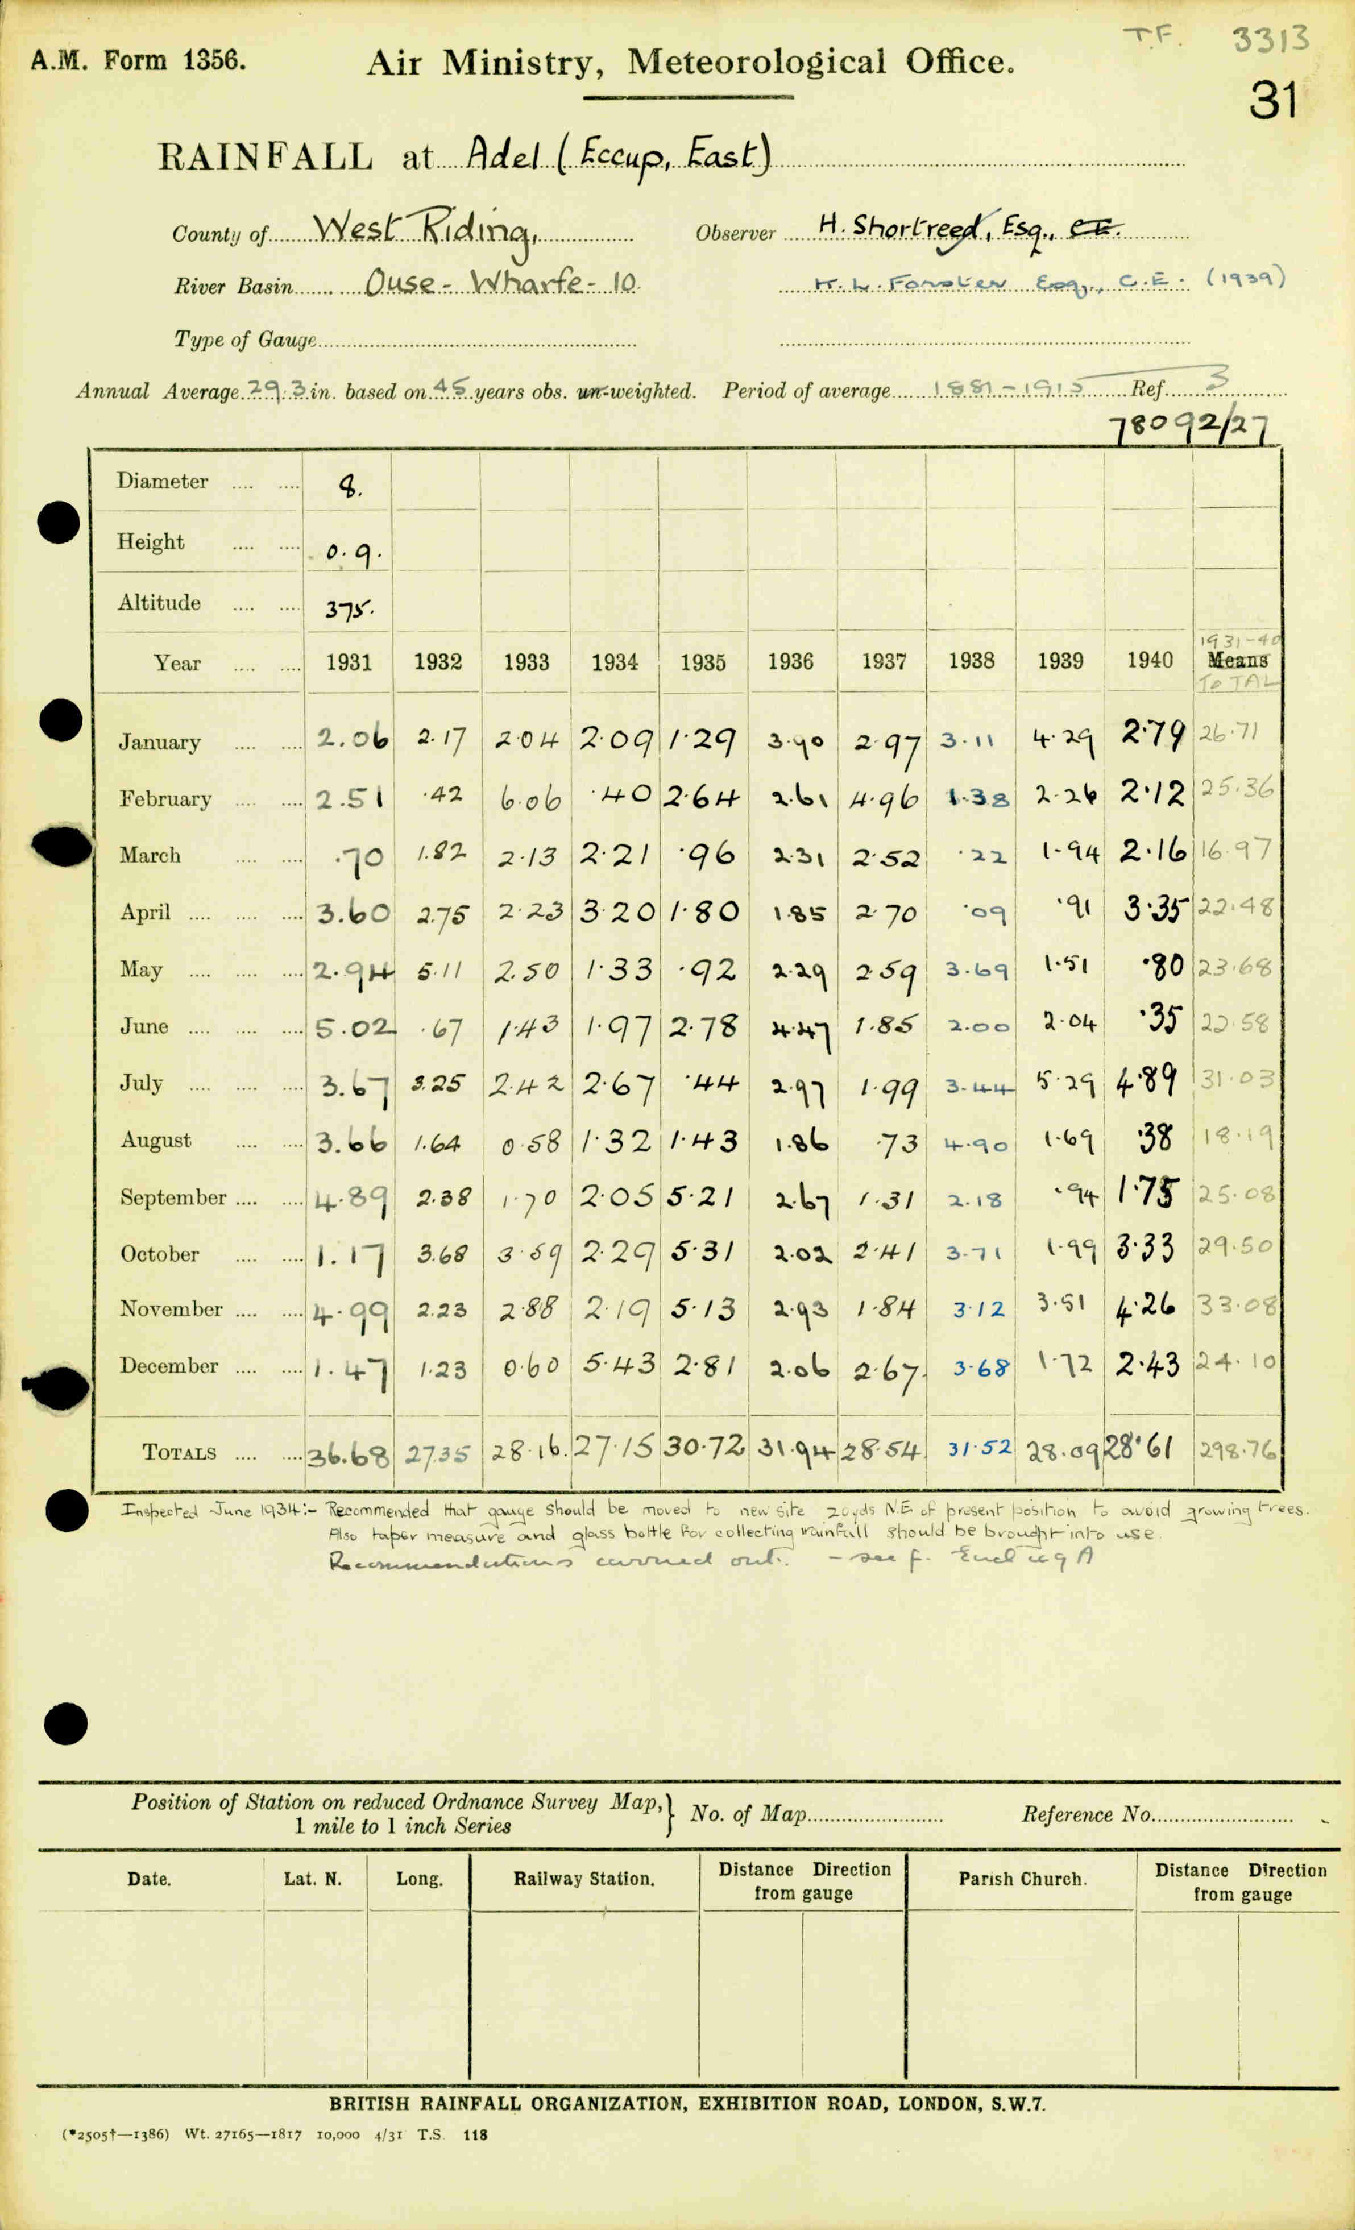 T.F. 3313
A.M. Form 1356. Air Ministry, Meteorological Office.
31
RAINFALL at Adel (Eccup, East)
County of West Riding, Observer H. Shortreed, Esq., C.E.
River Basin Ouse - Wharfe - 10. Esq., C.E. (1939)
Type of Gauge
Annual Average 29.3 in. based on 45 years obs. un-weighted. Period of average 1881-1915 Ref. 3
78092/27
Diameter 8.
Height 0.9.
Altitude 375.
1931-40
Year 1931 1932 1933 1934 1935 1936 1937 1938 1939 1940 Means
TOTAL
January 2.06 2.17 2.04 2.09 1.29 3.90 2.97 3.11 4.29 2.79 26.71
February 2.51 .42 6.06 .40 2.64 2.61 4.96 1.38 2.26 2.12 25.36
March .70 1.82 2.13 2.21 .96 2.31 2.52 .22 1.94 2.16 16.97
April 3.60 2.75 2.23 3.20 1.80 1.85 2.70 .09 .91 3.35 22.48
May 2.94 5.11 2.50 1.33 .92 2.29 2.59 3.69 1.51 .80 23.68
June 5.02 .67 1.43 1.97 2.78 4.47 1.85 2.00 2.04 .35 22.58
July 3.67 3.25 2.42 2.67 .44 2.97 1.99 3.44 5.29 4.89 31.03
August 3.66 1.64 0.58 1.32 1.43 1.86 .73 4.90 1.69 .38 18.19
September 4.89 2.38 1.70 2.05 5.21 2.67 1.31 2.18 .94 1.75 25.08
October 1.17 3.68 3.59 2.29 5.31 2.02 2.41 3.71 1.99 3.33 29.50
November 4.99 2.23 2.88 2.19 5.13 2.93 1.84 3.12 3.51 4.26 33.08
December 1.47 1.23 0.60 5.43 2.81 2.06 2.67 3.68 1.72 2.43 24.10
TOTALS 36.68 27.35 28.16 27.15 30.72 31.94 28.54 31.52 28.09 28.61 298.76
Inspected June 1934:- Recommended that gauge should be moved to new site 20yds N.E of present position to avoid growing trees.
Also taper measure and glass bottle for collecting rainfall should be brought into use.
Recommendations carried out. - see f.
Position of Station on reduced Ordnance Survey Map, } No. of Map Reference No.
1 mile to 1 inch Series
Date. Lat. N. Long. Railway Station. Distance Direction from gauge Parish Church. Distance Direction from gauge
BRITISH RAINFALL ORGANIZATION, EXHIBITION ROAD, LONDON, S.W.7.
(*2505†—1386) Wt. 27165—1817 10,000 4/31 T.S. 118